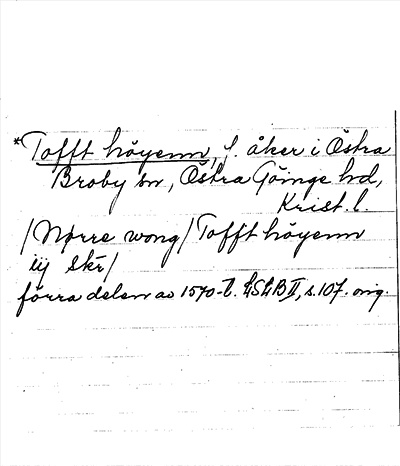 *Tofft höyenn, f. åker i Östra
Broby sn, Östra Göinge hd,
Krist. l.
/Nørre wong/ Tofft höyenn
iij Skr/
förra delen av 1570-t. LSLB II, s. 107. orig.